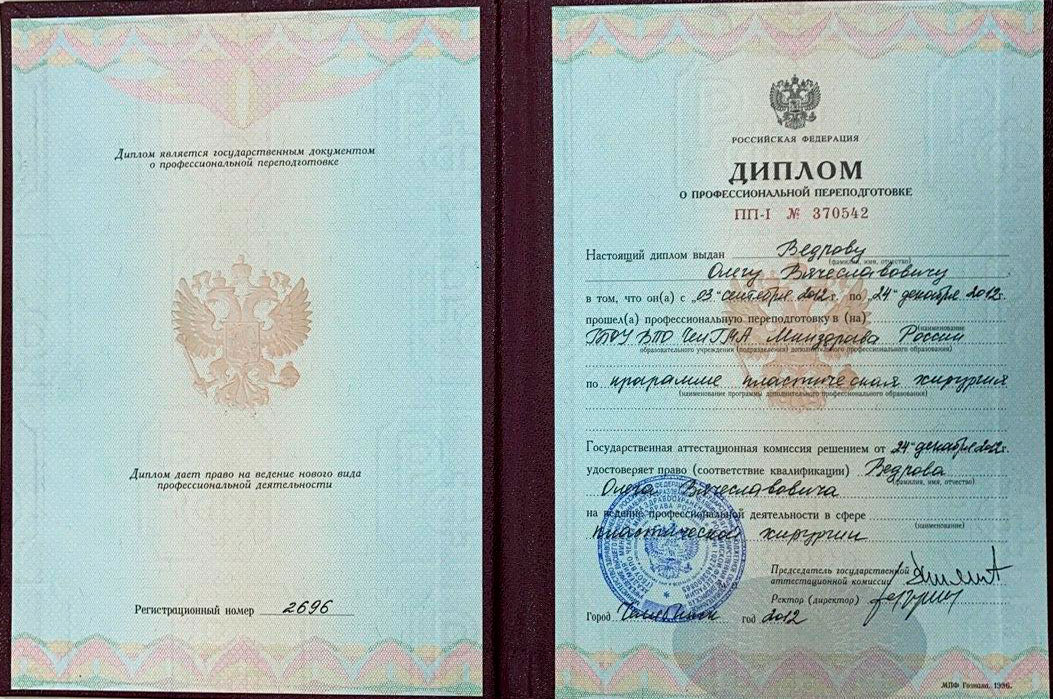 Диплом является государственным документом
о профессиональной переподготовке
Диплом дает право на ведение нового вида
профессиональной деятельности
Регистрационный номер 2696
РОССИЙСКАЯ ФЕДЕРАЦИЯ
ДИПЛОМ
О ПРОФЕССИОНАЛЬНОЙ ПЕРЕПОДГОТОВКЕ
ПП-I № 370542
Настоящий диплом выдан Ведрову
(фамилия, имя, отчество)
Олегу Вячеславовичу
в том, что он(а) с „03“ сентября 2012 г. по „24“ декабря 2012 г.
прошел(а) профессиональную переподготовку в (на)
(наименование
ГБОУ ВПО ЧелГМА Минздрава России
образовательного учреждения (подразделения) дополнительного профессионального образования)
по программе пластическая хирургия
(наименование программы дополнительного профессионального образования)
Государственная аттестационная комиссия решением от „24“ декабря 2012 г.
удостоверяет право (соответствие квалификации) Ведрова
(фамилия, имя, отчество)
Олега Вячеславовича
на ведение профессиональной деятельности в сфере
(наименование)
пластической хирургии
Председатель государственной
аттестационной комиссии
Ректор (директор)
Город Челябинск год 2012
МПФ Гознака. 1996.